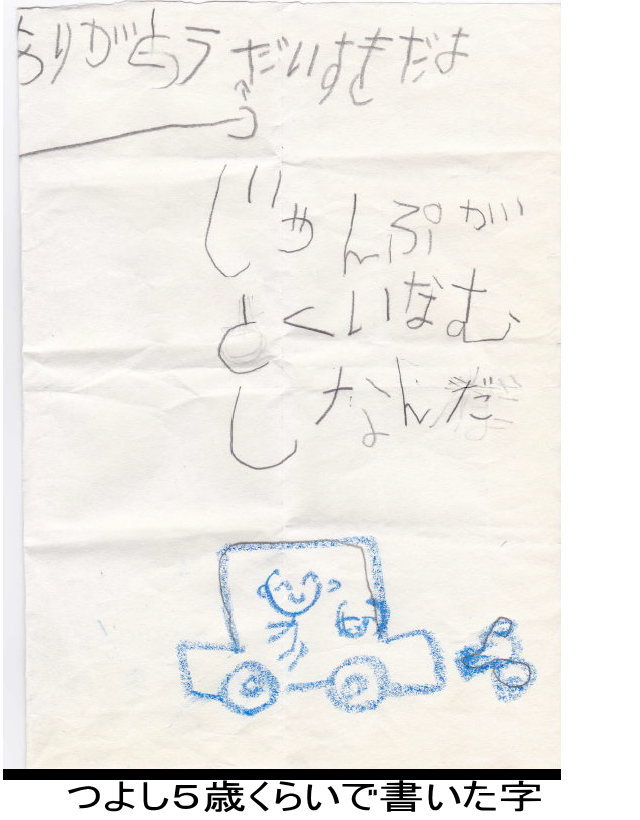 ありがとう だいすきだよ
つ
じゃんぷが
とくいなむ
しなんだ
つよし5歳くらいで書いた字